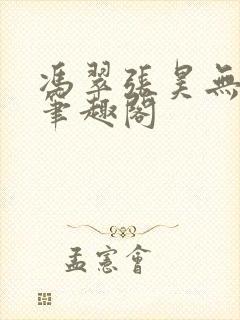 馮翠張昊無
筆趣閣
孟憲會